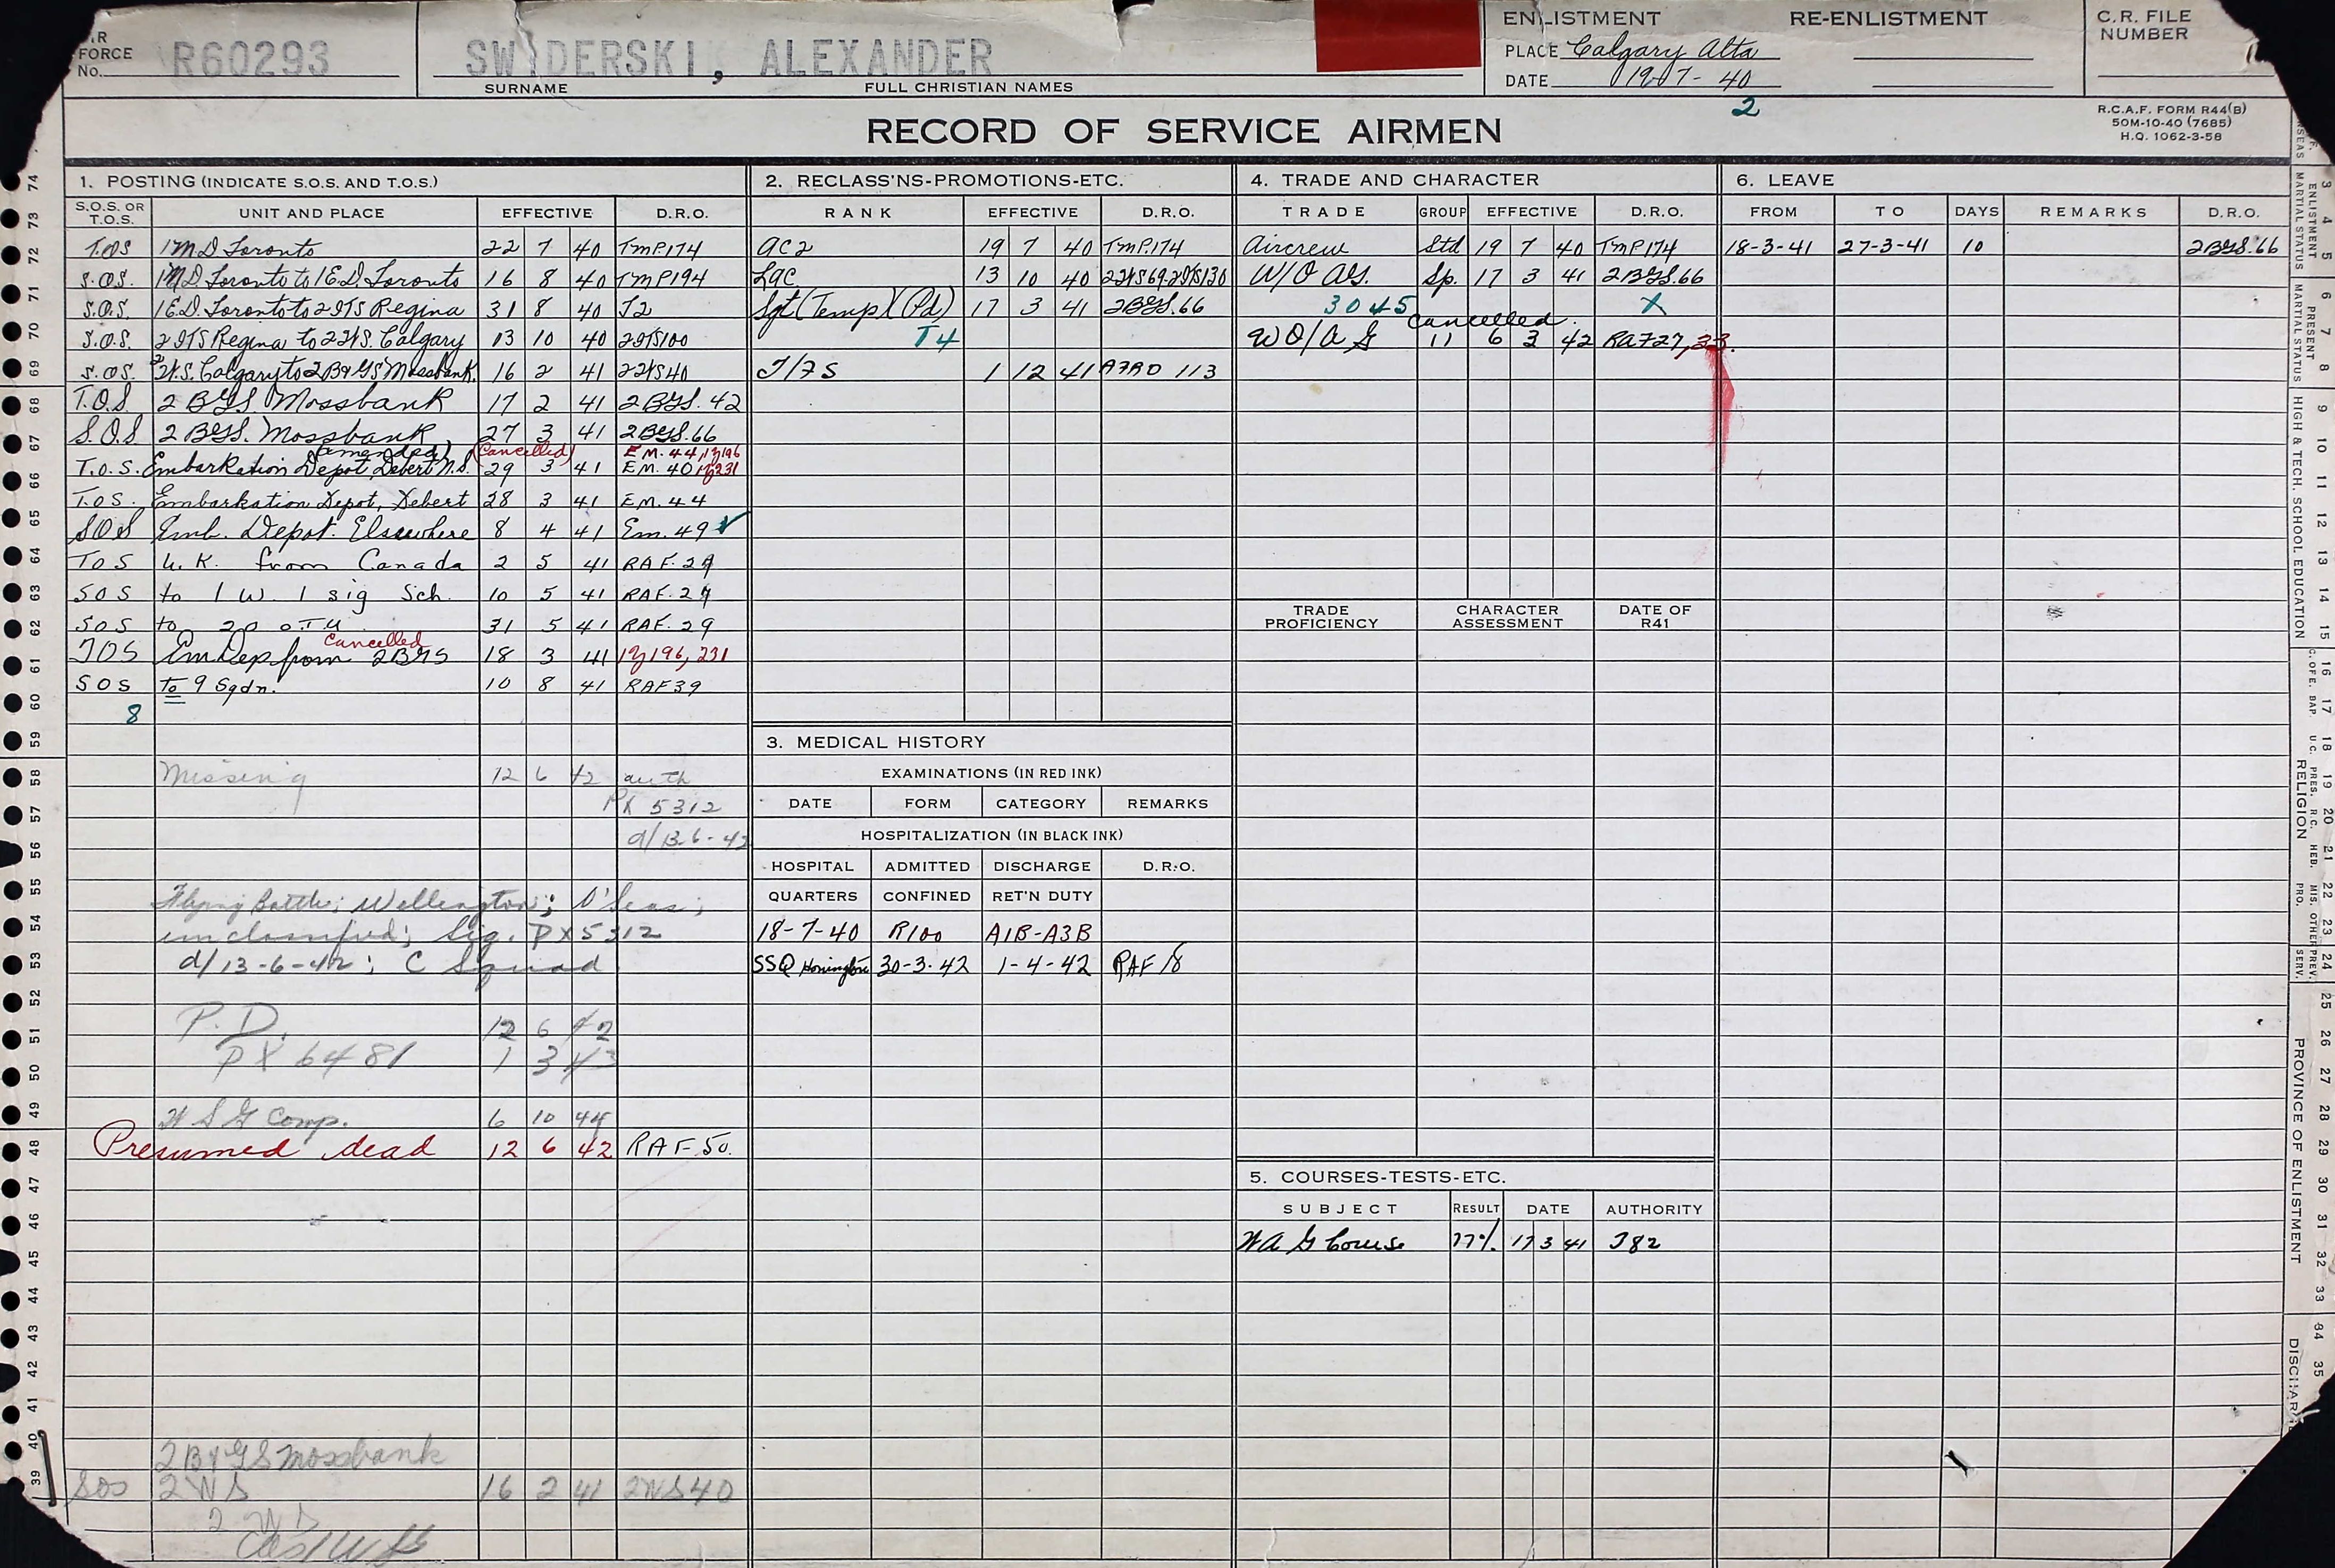 AIR FORCE No. R60293
SWIDERSKI, ALEXANDER
SURNAME FULL CHRISTIAN NAMES
ENLISTMENT RE-ENLISTMENT
PLACE Calgary Alta
DATE 19-7-40
2
C.R. FILE NUMBER
R.C.A.F. FORM R44(B)
50M-10-40 (7685)
H.Q. 1062-3-58
RECORD OF SERVICE AIRMEN
1. POSTING (INDICATE S.O.S. AND T.O.S.)
S.O.S. OR T.O.S. UNIT AND PLACE EFFECTIVE D.R.O.
T.O.S 1 M.D Toronto 22 7 40 TMP.174
S.O.S. 1 M.D. Toronto to 1 E.D. Toronto 16 8 40 TMP194
S.O.S. 1 E.D. Toronto to 2 ITS Regina 31 8 40 J2
S.O.S. 2 ITS Regina to 2 W.S. Calgary 13 10 40 2ITS100
S.O.S. 2 W.S. Calgary to 2 B&GS Mossbank. 16 2 41 2WS40
T.O.S 2 BGS Mossbank 17 2 41 2 BGS. 42
S.O.S 2 BGS. Mossbank 27 3 41 2BGS.66
(amended) (Cancelled) EM.44, 196
T.O.S. Embarkation Depot, Debert N.S. 29 3 41 EM. 40 231
T.O.S. Embarkation Depot, Debert 28 3 41 EM. 44
S.O.S Emb. Depot. Elsewhere 8 4 41 Em. 49
TOS U.K. from Canada 2 5 41 RAF. 29
SOS to 1 W. 1 sig Sch. 10 5 41 RAF. 29
SOS to 20 O.T.U. 31 5 41 RAF. 29
Cancelled
TOS Em Dep from 2BGS 18 3 41 196, 231
SOS to 9 Sqdn. 10 8 41 RAF39
8
Missing 12 6 42 auth
PX 5312
d/13-6-42
Flying Battle; Wellington; O'Seas;
unclassified; Sig. PX5312
d/13-6-42; C Squad.
P.D. 12 6 42
PX 6481 1 3 43
W S G Comp. 6 10 44
Presumed dead 12 6 42 RAF 50.
2 B&GS Mossbank
SOS 2 WS 16 2 41 2WS40
2 WS
2. RECLASS'NS-PROMOTIONS-ETC.
RANK EFFECTIVE D.R.O.
AC2 19 7 40 TMP.174
LAC 13 10 40 2WS69-2ITS130
Sgt (Temp) (Pd) 17 3 41 2BGS.66
T4
T/FS 1 12 41 AFRO 113
3. MEDICAL HISTORY
EXAMINATIONS (IN RED INK)
DATE FORM CATEGORY REMARKS
HOSPITALIZATION (IN BLACK INK)
HOSPITAL ADMITTED DISCHARGE D.R.O.
QUARTERS CONFINED RET'N DUTY
18-7-40 R100 A1B-A3B
SSQ Honington 30-3-42 1-4-42 RAF 18
4. TRADE AND CHARACTER
TRADE GROUP EFFECTIVE D.R.O.
Aircrew Std 19 7 40 TMP.174
W/O AG. Sp. 17 3 41 2BGS.66
3045 X
Cancelled
WO/AG 11 6 3 42 RAF27, 33.
TRADE PROFICIENCY CHARACTER ASSESSMENT DATE OF R41
5. COURSES-TESTS-ETC.
SUBJECT RESULT DATE AUTHORITY
WAG Course 77% 17 3 41 J82
6. LEAVE
FROM TO DAYS REMARKS D.R.O.
18-3-41 27-3-41 10 2BGS.66
74
73
72
71
70
69
68
67
66
65
64
63
62
61
60
59
58
57
56
55
54
53
52
51
50
49
48
47
46
45
44
43
42
41
40
39
ENLISTMENT MARITAL STATUS
PRESENT MARITAL STATUS
HIGH & TECH. SCHOOL EDUCATION
C. OF E. BAP. U.C. PRES. R.C. HEB. MIS. OTHER
RELIGION
PRO. PREV. SERV.
PROVINCE OF ENLISTMENT
3
4
5
6
7
8
9
10
11
12
13
14
15
16
17
18
19
20
21
22
23
24
25
26
27
28
29
30
31
32
33
34
35